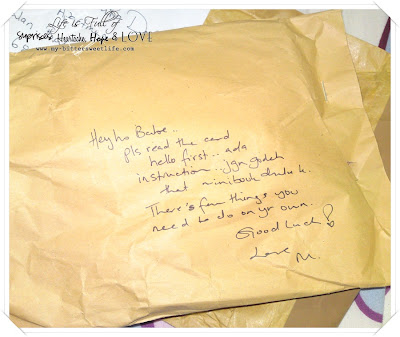 Life is Full of
Surprises, Heartache, Hope & LOVE
www.my-bittersweetlife.com
Heyho Babe..
pls read the card
hello first... ada
instruction... jgn godeh
that minibook dulu k.
There's few things you
need to do on yr own.
Good Luck!
Love
M.